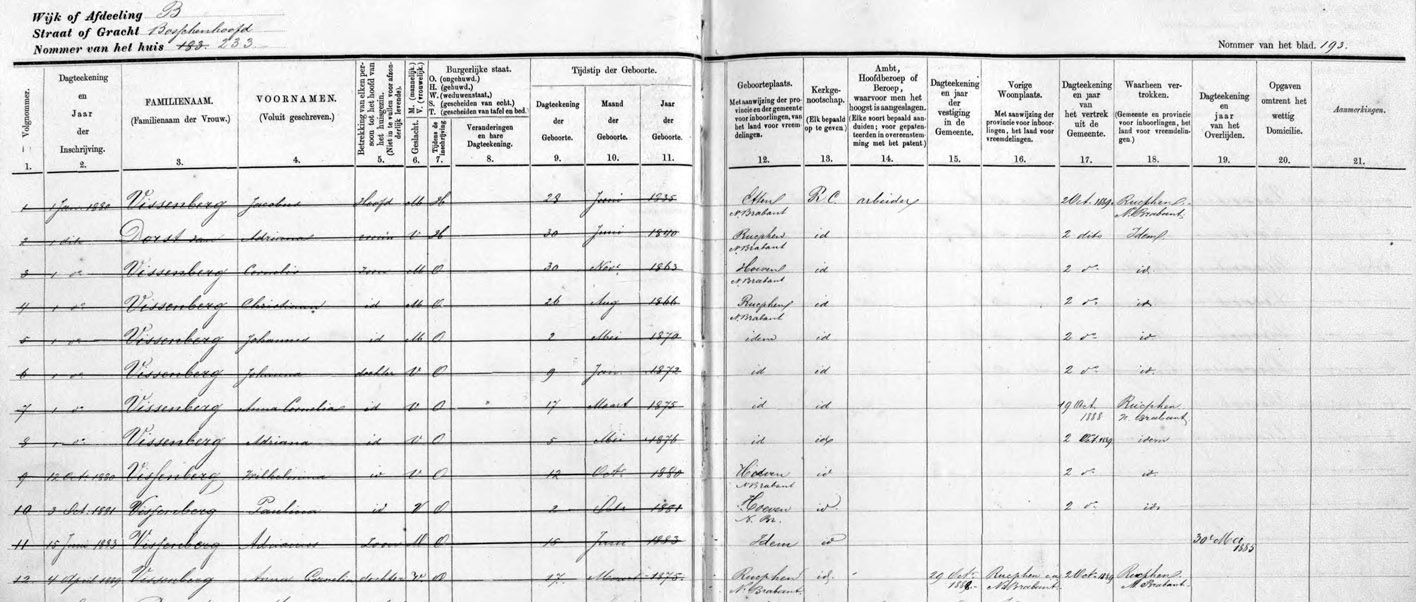 Wijk of Afdeeling B
Straat of Gracht Bosschenhoofd
Nommer van het huis 183. 233
Nommer van het blad. 193.
Volgnommer.
1.
Dagteekening en Jaar der Inschrijving.
2.
FAMILIENAAM.
(Familienaam der Vrouw.)
3.
VOORNAMEN.
(Voluit geschreven.)
4.
Betrekking van elken persoon tot het hoofd van het huisgezin.
(Niet in te vullen voor afzonderlijk levende).
5.
Geslacht. M. (mannelijk.) V. (vrouwelijk.)
6.
Burgerlijke staat.
O. (ongehuwd.)
H. (gehuwd.)
W. (weduwenstaat.)
S. (gescheiden van echt.)
T. (gescheiden van tafel en bed.)
Tijdens de inschrijving
7.
Veranderingen en hare Dagteekening.
8.
Tijdstip der Geboorte.
Dagteekening der Geboorte.
9.
Maand der Geboorte.
10.
Jaar der Geboorte.
11.
Geboorteplaats.
Met aanwijzing der provincie en der gemeente voor inboorlingen, van het land voor vreemdelingen.
12.
Kerkgenootschap.
(Elk bepaald op te geven.)
13.
Ambt, Hoofdberoep of Beroep, waarvoor men het hoogst is aangeslagen.
(Elke soort bepaald aanduiden; voor gepatenteerden in overeenstemming met het patent.)
14.
Dagteekening en jaar der vestiging in de Gemeente.
15.
Vorige Woonplaats.
Met aanwijzing der provincie voor inboorlingen, het land voor vreemdelingen.
16.
Dagteekening en jaar van het vertrek uit de Gemeente.
17.
Waarheen vertrokken.
(Gemeente en provincie voor inboorlingen, het land voor vreemdelingen.)
18.
Dagteekening en jaar van het Overlijden.
19.
Opgaven omtrent het wettig Domicilie.
20.
Aanmerkingen.
21.
1 1 Jan 1880 Vissenberg Jacobus Hoofd M H 28 Juni 1835 Etten N Brabant R C. arbeider 2 Oct. 1889 Rucphen N. Brabant.
2 1 dito Dorst van Adriana V H 30 Juni 1840 Rucphen N. Brabant id 2 dito Idem
3 1 do Vissenberg Cornelis Zoon M O 30 Nov. 1863 Hoeven N Brabant id 2 do id
4 1 do Vissenberg Christiaan id M O 26 Aug 1866 Rucphen N. Brabant id 2 do id.
5 1 do Vissenberg Johannes id M O 2 Mei 1870 idem id 2 do id
6 1 do Vissenberg Johanna dochter V O 9 Jan 1872 id id 2 do id.
7 1 do Vissenberg Anna Cornelia id V O 17 Maart 1875 id id 19 Oct. 1888 Rucphen N. Brabant
8 1 do Vissenberg Adriana id V O 5 Mei 1876 id id 2 Oct. 1889 idem
9 12 Oct. 1880 Vissenberg Wilhelmina id V O 12 Oct. 1880 Hoeven N Brabant id 2 do id
10 3 Oct. 1881 Vissenberg Paulina id V O 2 1881 Hoeven N. Br. id 2 do id.
11 15 Juni 1883 Vissenberg Adrianus Zoon M O 15 Juni 1883 Idem id 30 Mei 1885
12 4 April 1889 Vissenberg Anna Cornelia dochter V O 17 Maart 1875 Rucphen N. Brabant id 29 Oct. Rucphen N Brabant 2 Oct. 1889 Rucphen N Brabant.